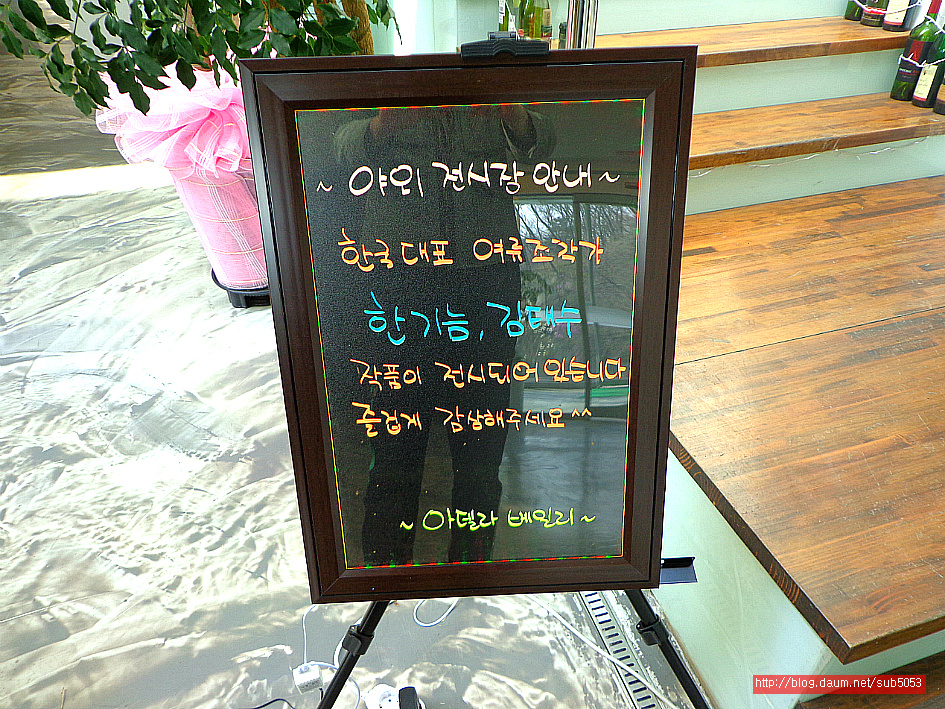 ~ 야외 전시장 안내 ~
한국대표 여류조각가
한기늠, 김태수
작품이 전시되어 있습니다
즐겁게 감상해주세요^^
~ 아델라 베일리 ~
http://blog.daum.net/sub5053